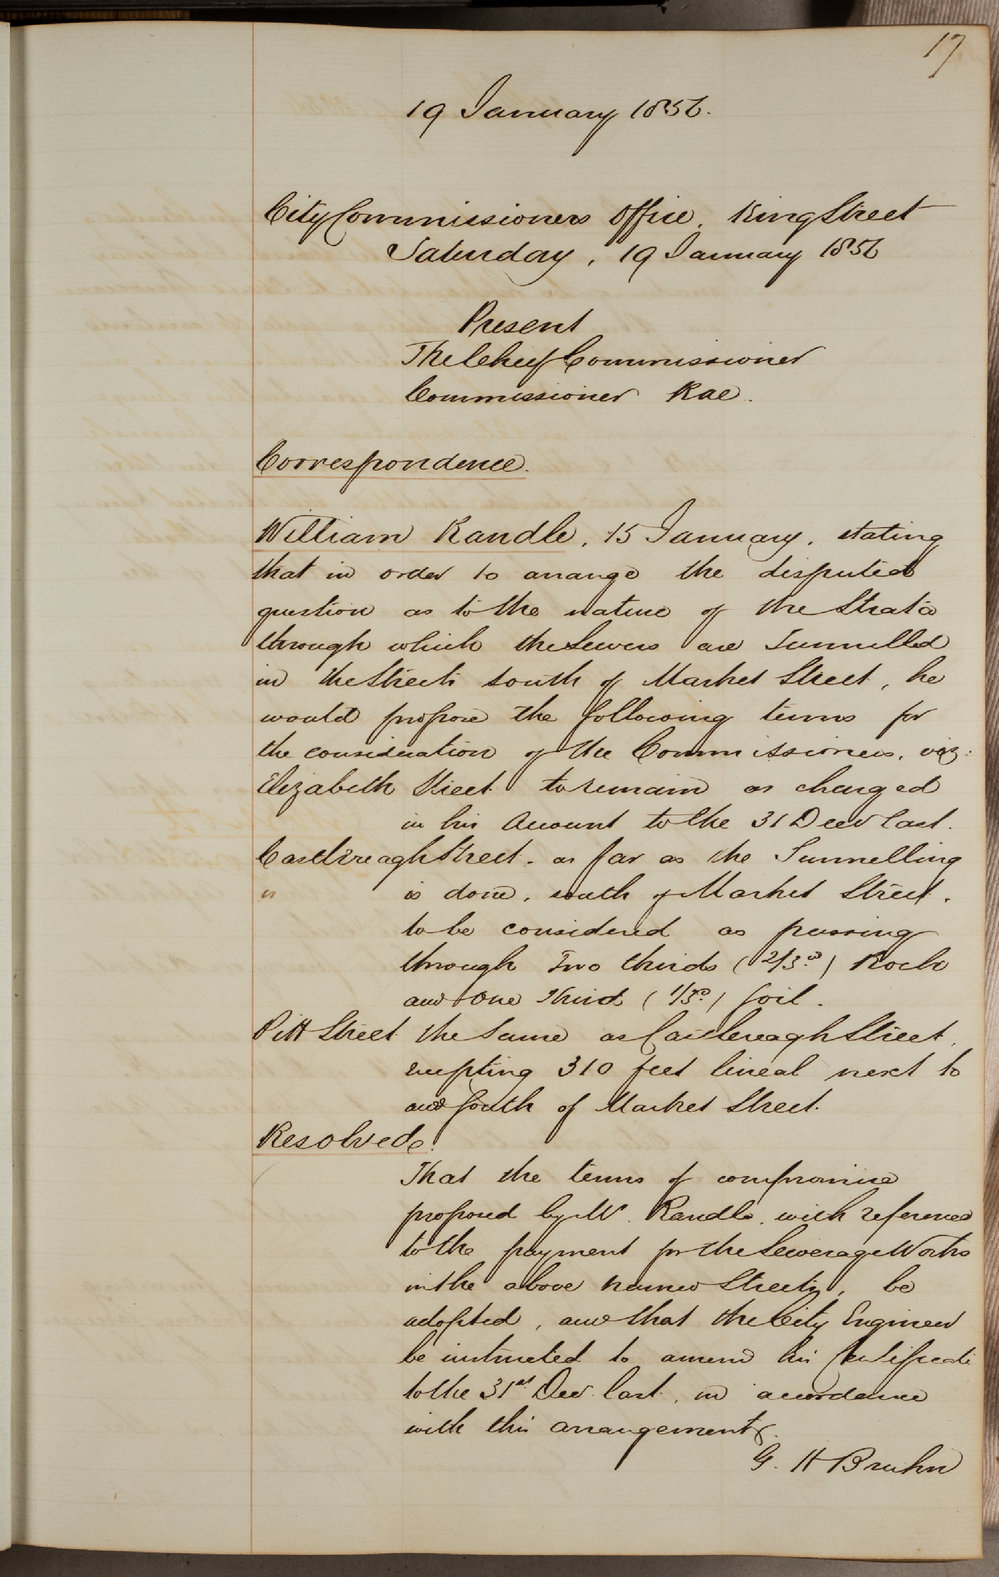 17
19 January 1856.
City Commissioners Office, King Street
Saturday, 19 January 1856
Present
The Chief Commissioner
Commissioner Rae.
Correspondence.
William Randle, 15 January, stating
that in order to arrange the disputed
question as to the nature of the Strata
through which the Sewers are Tunnelled
in the Streets south of Market Street, he
would propose the following terms for
the consideration of the Commissioners, viz:
Elizabeth Street to remain as charged
in his Account to the 31 Decr last.
Castlereagh Street. as far as the Tunnelling
is done, south of Market Street,
to be considered as passing
through Two thirds (2/3ds) Rock
and One Third (1/3d) soil.
Pitt Street the same as Castlereagh Street,
excepting 310 feet lineal next to
and South of Market Street.
Resolved.
That the terms of compromise
proposed by Mr. Randle, with reference
to the payment for the Sewerage Works
in the above named Streets, be
adopted, and that the City Engineer
be instructed to amend his Certificate
to the 31st Decr. last, in accordance
with this arrangement.
G. H Bruhn